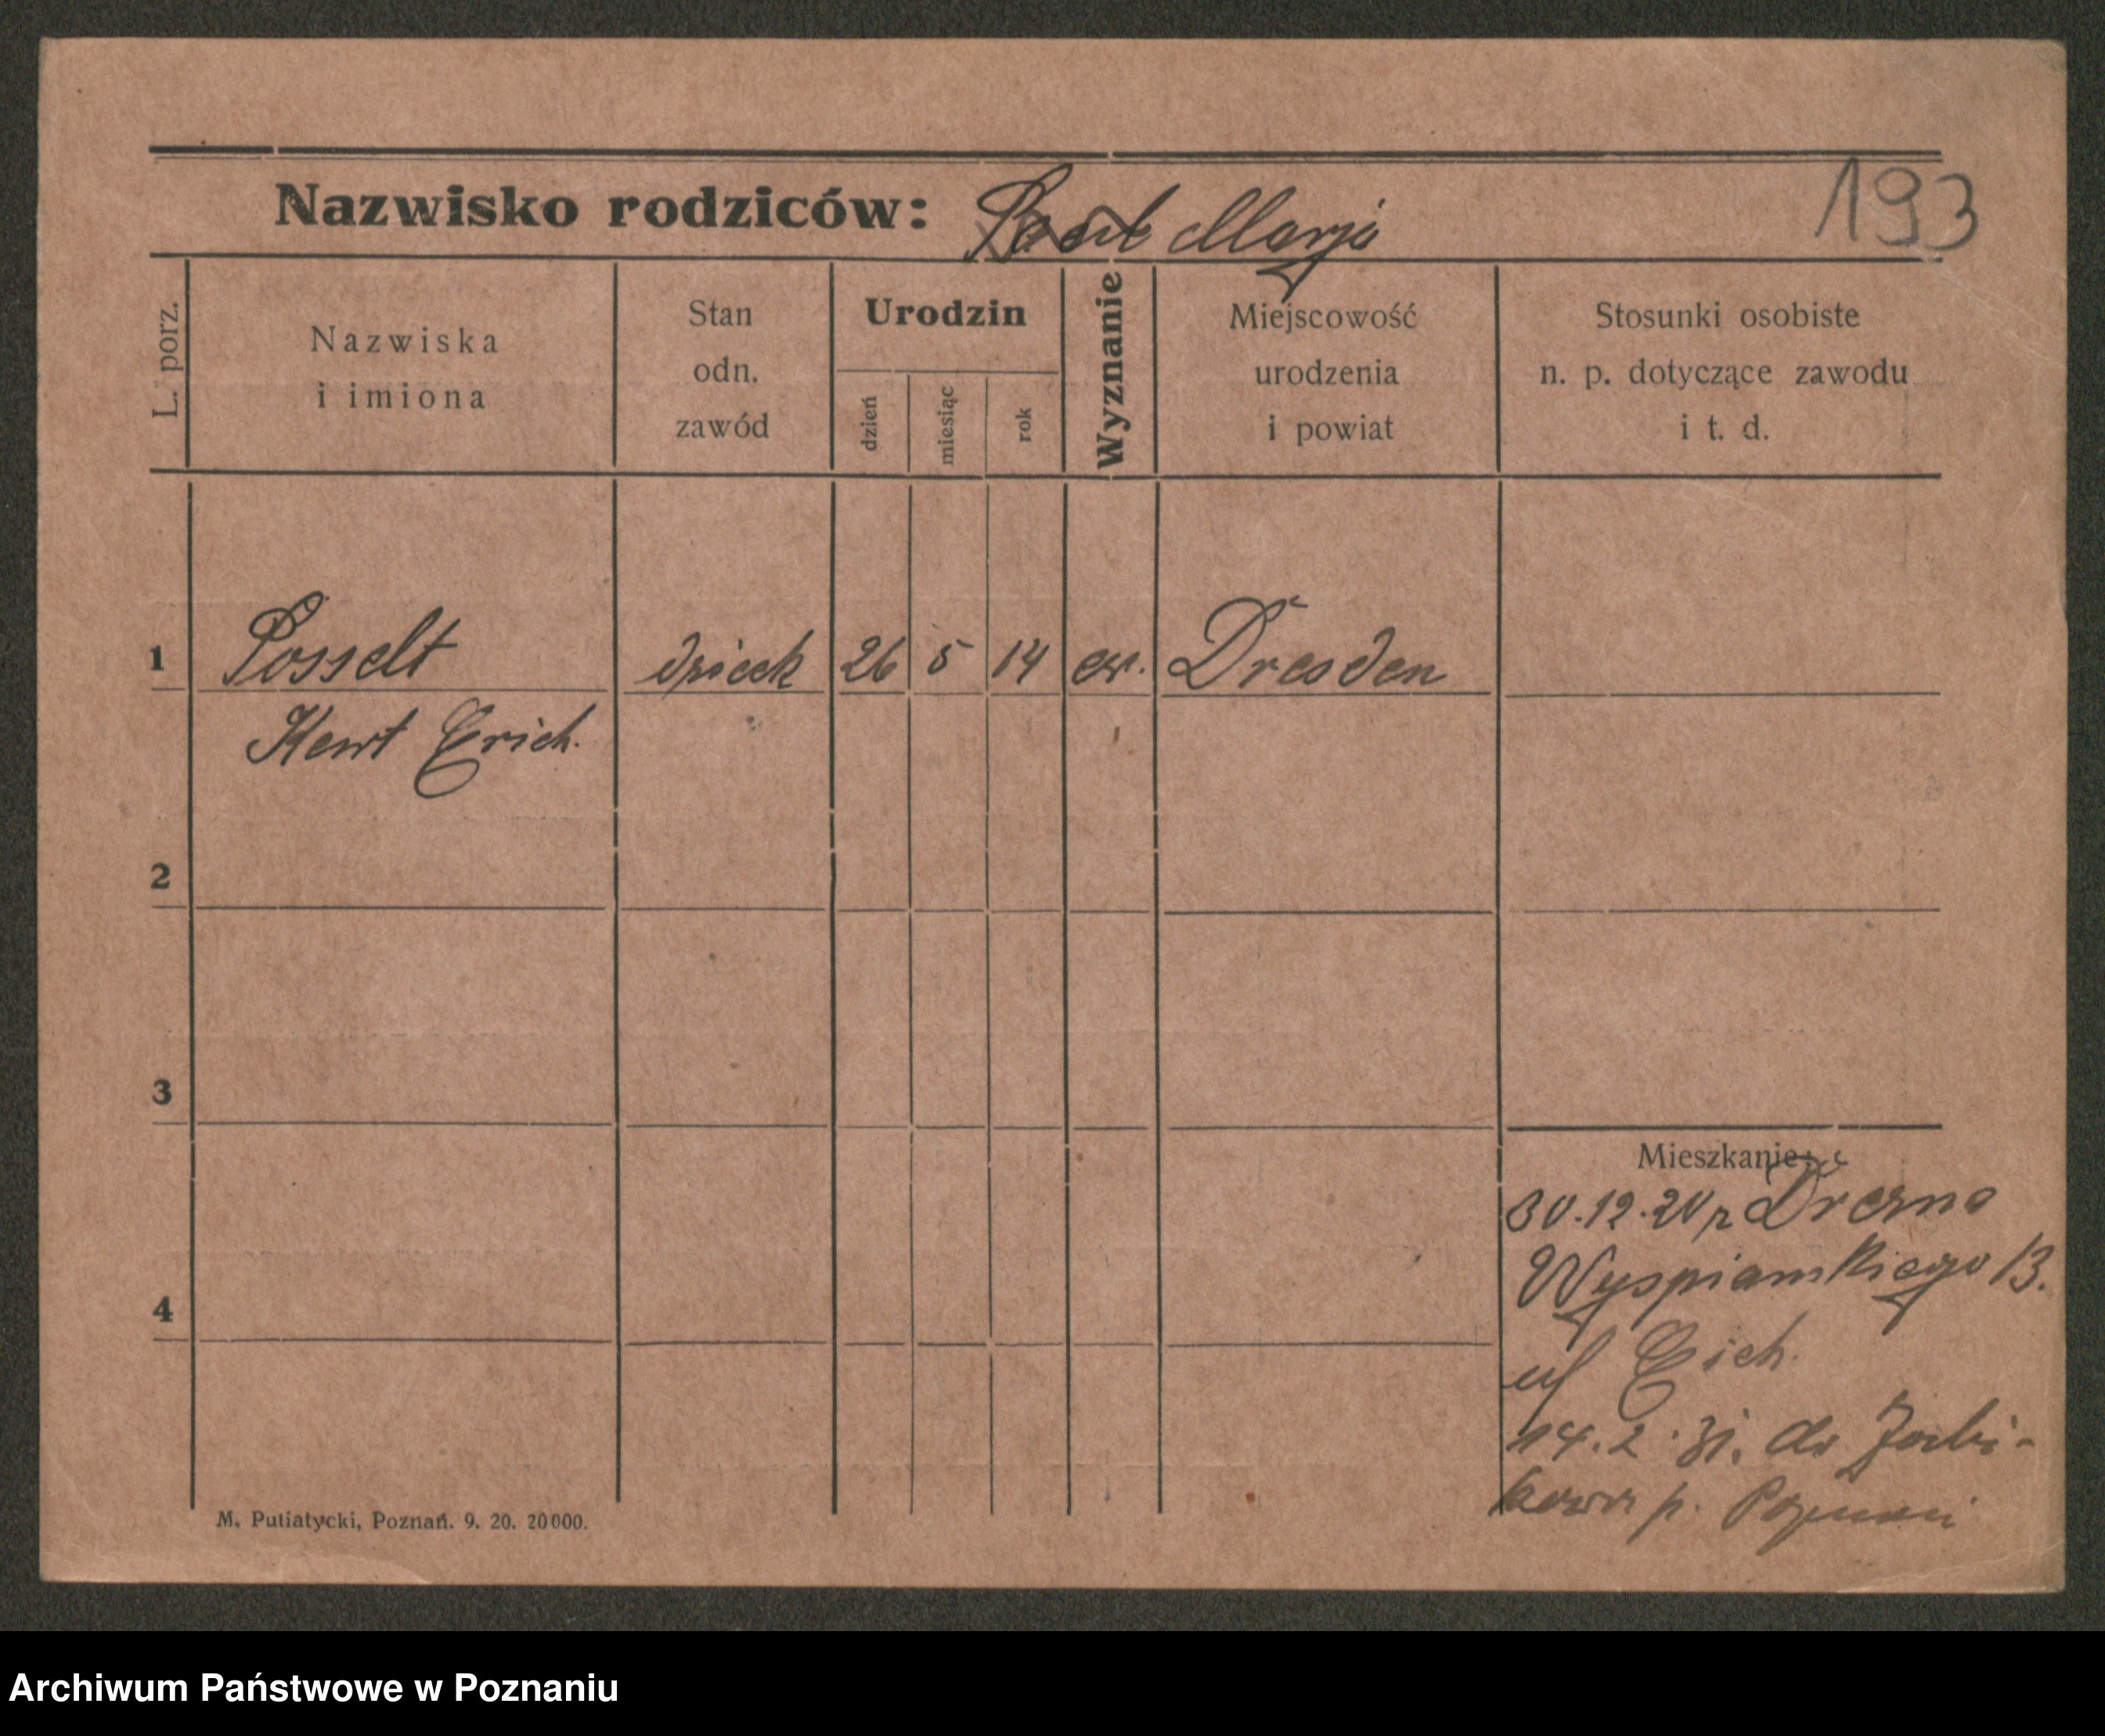 Nazwisko rodziców: Marja
193
L. porz.
Nazwiska
i imiona
Stan
odn.
zawód
Urodzin
dzień
miesiąc
rok
Wyznanie
Miejscowość
urodzenia
i powiat
Stosunki osobiste
n. p. dotyczące zawodu
i t. d.
1 Posselt 26 5 14 ew. Dresden
Kurt Erich.
2
3
4
Mieszkanie:
30.12.20 z Drezna
Wyspianskiego 13.
14.2.31. do Żabi-
kowa p. Poznań
M. Putiatycki, Poznań. 9. 20. 20000.
Archiwum Państwowe w Poznaniu